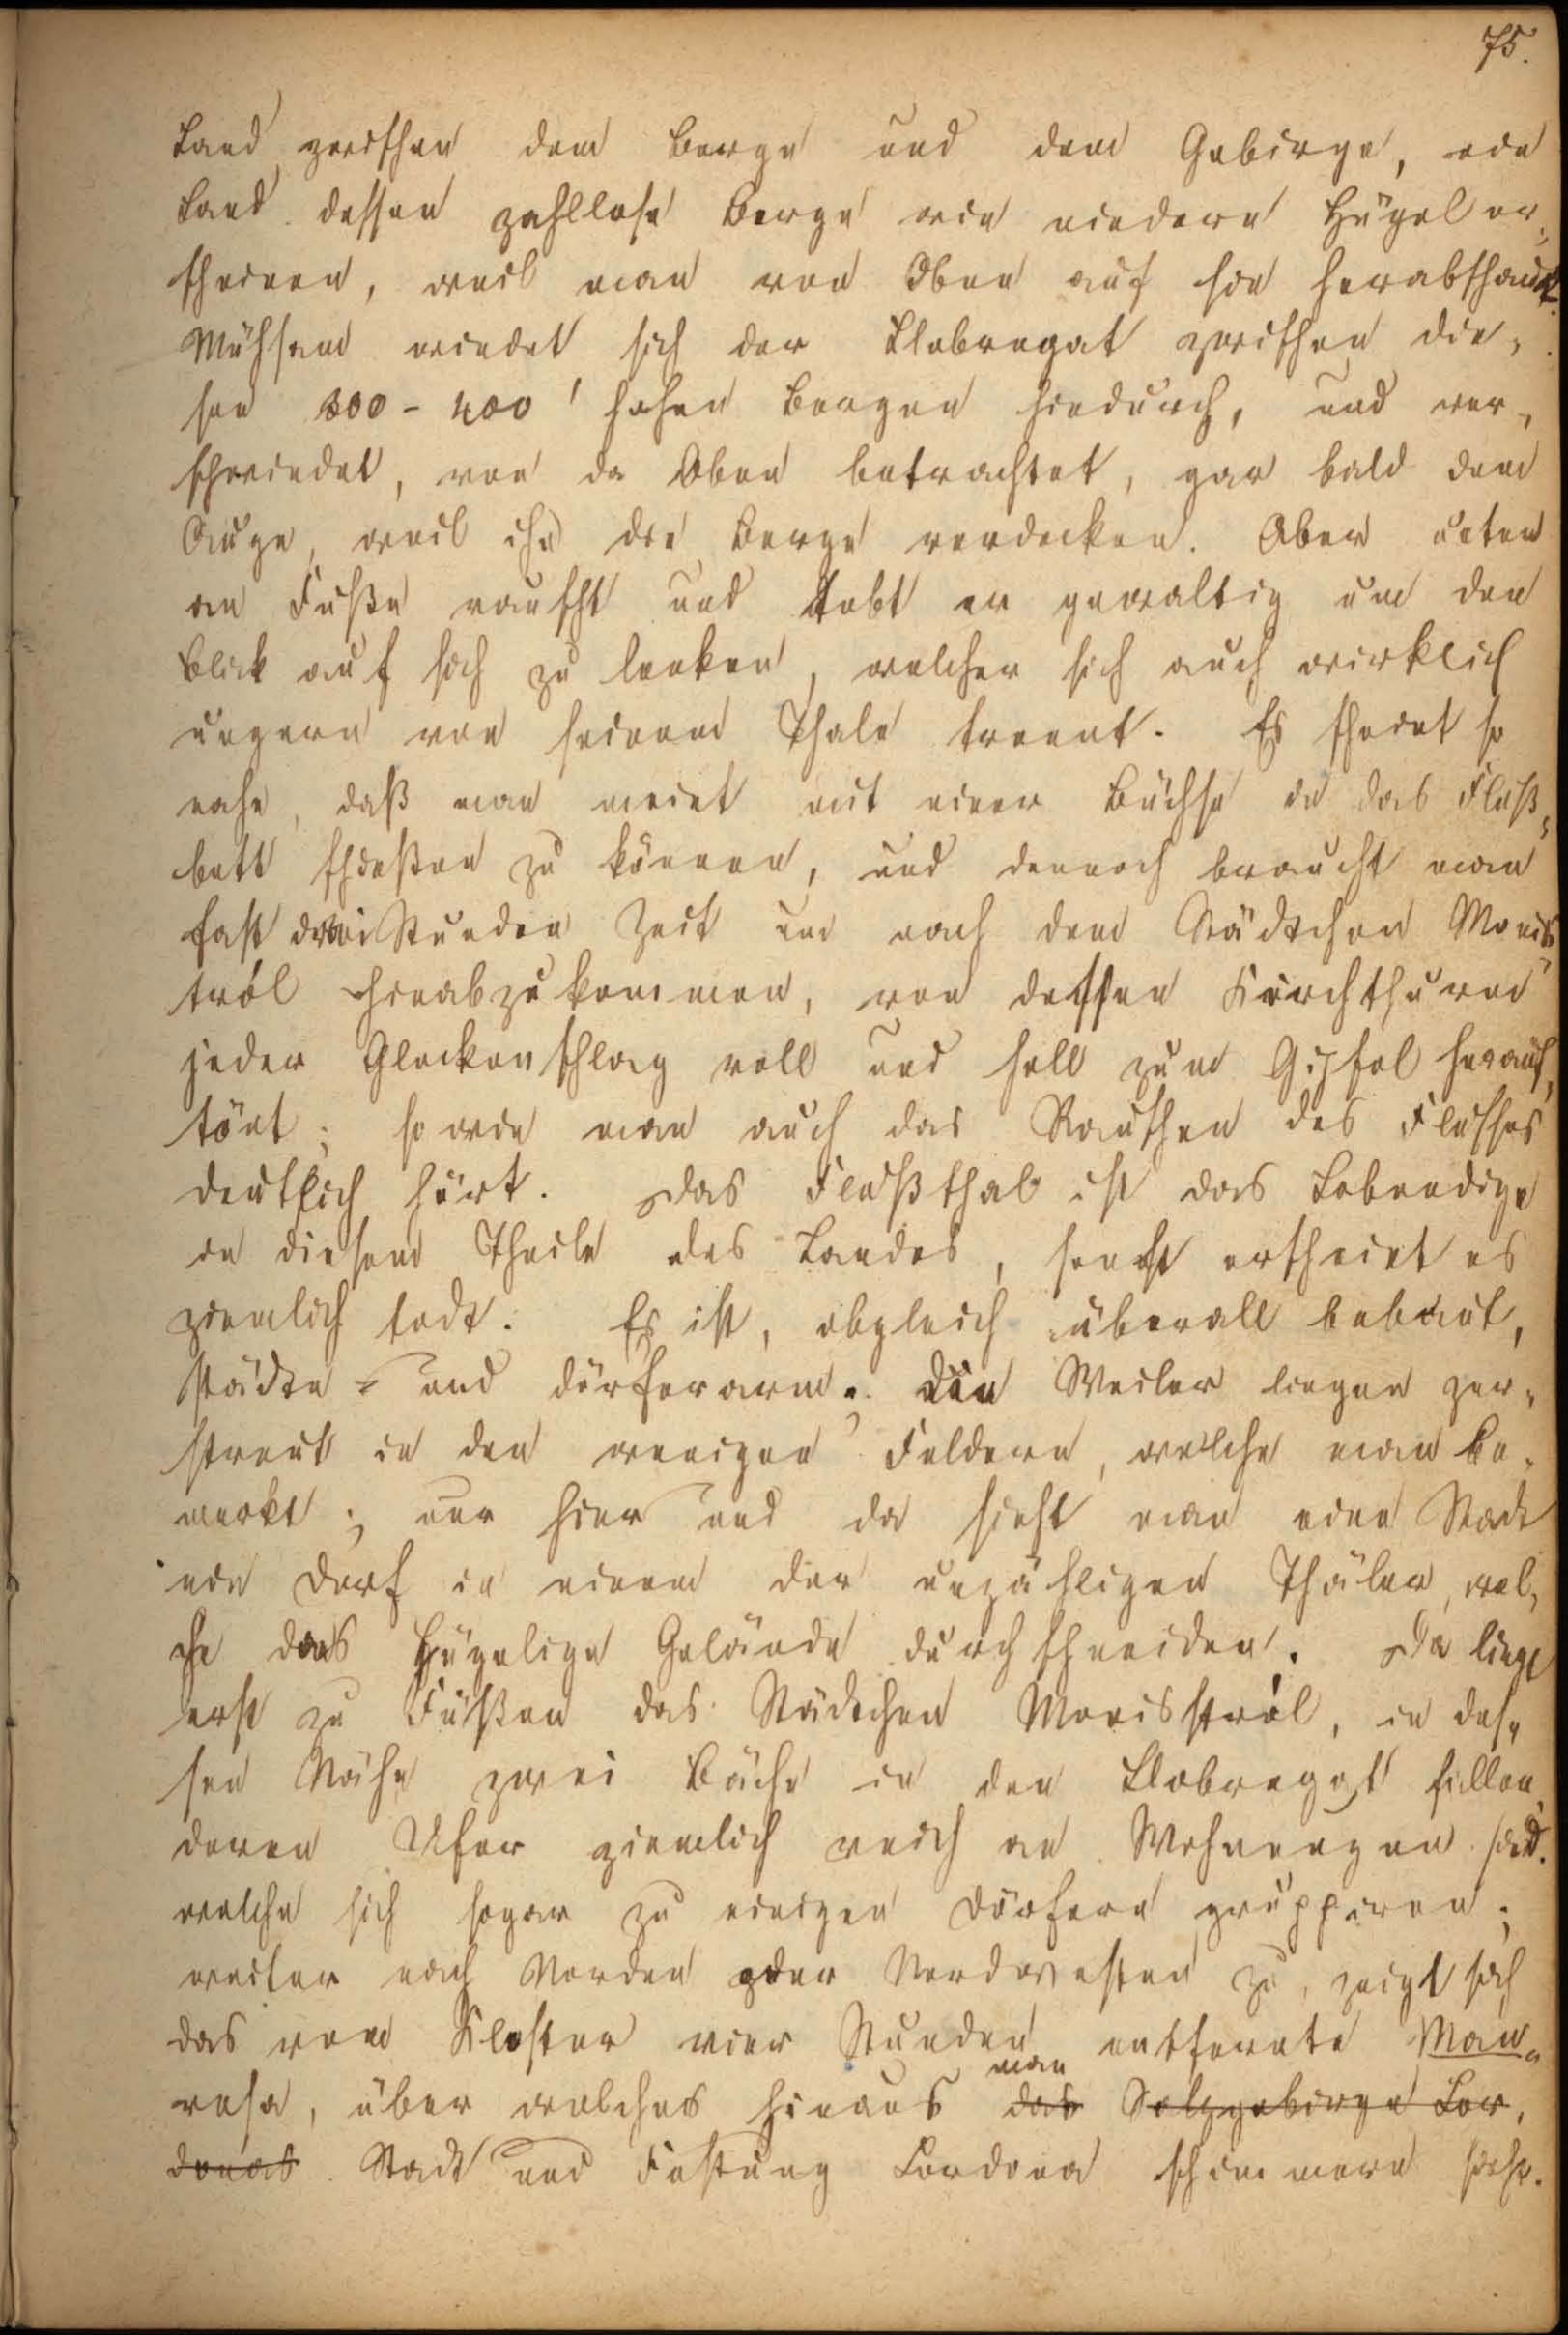 75.
Land zwischen dem Berge und dem Gebirge, ein
Land dessen zahllose Berge wie niedere Hügel er-
scheinen, weil man von Oben auf sie herabschaut.
Mühsam windet sich der Llobregat zwischen die-
sen 300 - 400' hohen Bergen hindurch, und ver-
schwindet, von da Oben betrachtet, gar bald dem
Auge, weil ihn die Berge verdecken. Aber unten
am Fuße rauscht und tobt er gewaltig um den
Blick auf sich zu lenken, welcher sich auch wirklich
ungern von seinem Thale trennt. Es scheint so
nahe, daß man meint mit einer Büchse in das Fluß-
bett schießen zu können, und dennoch braucht man
fast drei Stunden Zeit um nach dem Städtchen Monis
tról hinabzukommen, von dessen Kirchthurm
jeder Glockenschlag voll und hell zum Gipfel herauf-
tönt; so wie man auch das Rauschen des Flusses
deutlich hört. Das Flußthal ist das Lebendige
in diesem Theile des Landes, sonst erscheint es
ziemlich todt. Es ist, obgleich überall bebaut,
städte- und dörferarm. Die Weiler liegen zer-
streut in den wenigen Feldern, welche man be-
merkt; nur hier und da sieht man eine Stadt
ein Dorf in einem der unzähligen Thäler, wel-
che das hügelige Gelände durchschneiden. Da liegt
erst zu Füßen das Städtchen Monisstról, in des-
sen Nähe zwei Bäche in den Llobregat fallen,
deren Ufer ziemlich reich an Wohnungen sind.
welche sich sogar zu einigen Dörfern gruppiren;
weiter nach Norden oder Nordwesten zu, zeigt sich
das vom Kloster vier Stunden entfernte Man-
resa, über welches hinaus man das Salzgebirge Cor-
donas Stadt und Festung Cordona schimmern sieht.